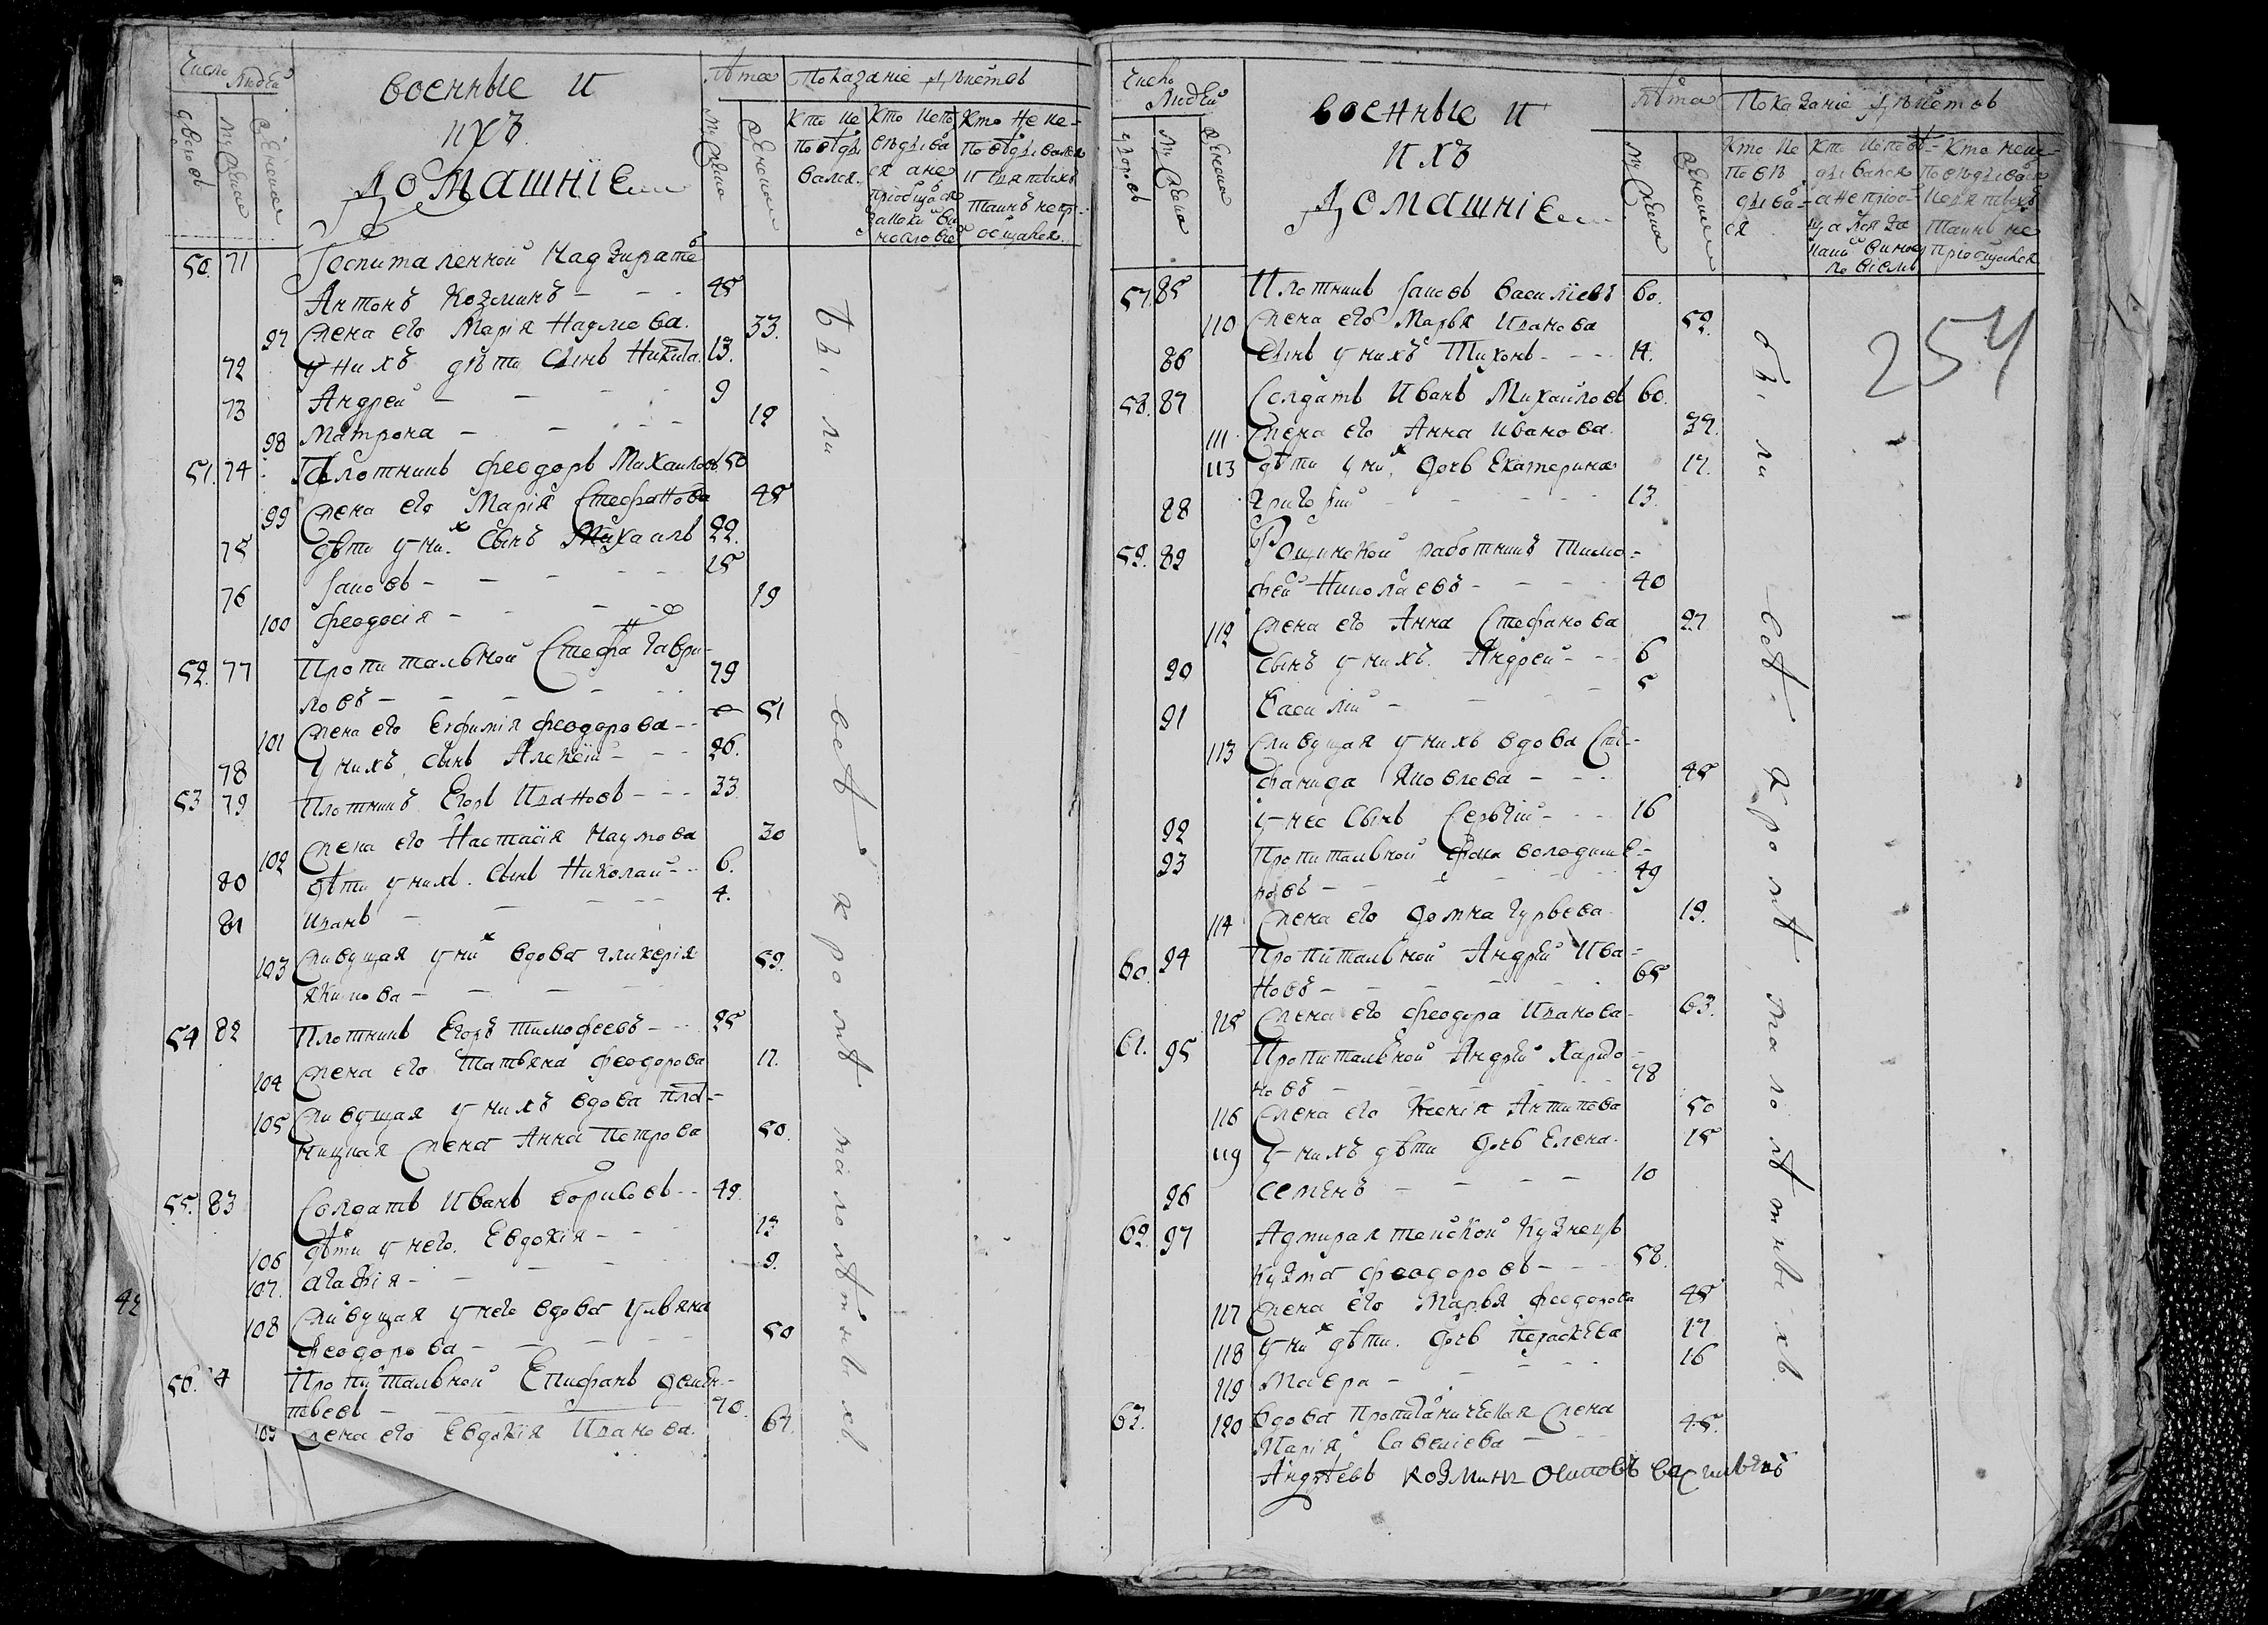 Число Людей
военные и
ихъ
Домашніе
Лѣта
Показаніе дѣйств
дворовъ
муж. пола
женска
муж. пола
женска
Кто не
по вѣды
вался.
Кто испо
вѣдыва
ся а не
приобща ся
Кто не ис-
по вѣдывался
и святыхъ
таинъ не пр-
общался.
50. 71 Госпиталенной надзирате
Антонъ Козминъ - - - 45
97 жена его Марія Наумова. 33.
72 у нихъ дѣти сынъ Никита. 13.
73 Андрей - - - 9
98 Матрона - - - 12
51. 74 Плотникъ Феодоръ Михаиловъ 50
99 жена его Марія Стефанова 45
75 дѣти у них сынъ Михаилъ 22.
76 Іаковъ - - - 15
100 Феодосія - - - 19
52. 77 Пропитальной Стефа Гаври-
ловъ - - - 79
101 жена его Евфимія Феодорова - - 51
78 у нихъ сынъ Алексій - - 26.
53 79 Плотникъ Егоръ Ивановъ - - - 33
102 жена его Настасія Наумова 30
80 дѣти у нихъ. сынъ Николай - - 6.
81 Иванъ - - - 4.
103 живущая у них вдова Гликерія
Якимова - - - 59.
54 82 Плотникъ Егоръ Тимофеевъ - - 25
104 жена его Татьяна Феодорова 17.
105 живущая у нихъ вдова
жена Анна Петрова 50.
55. 83 Солдатъ Иванъ Борисовъ - - 49.
106 дѣти у него. Евдокія - - 13
107. Агафія - - - 9.
108 живущая у него вдова Ульяна
Феодорова - - - 50
56. 4 Пропитальной Епифанъ Демен-
тьевъ - - - 70.
109 жена его Евдокія Иванова. 67.
бы ли всѣ кромѣ малолѣтныхъ
42
Число Людей
военные и
ихъ
Домашніе
Лѣта
Показаніе дѣйств
дворовъ
муж. пола
женска
муж. пола
женска
Кто не
по вѣ
дыва-
ся
Кто испов-
дывался
а не приоб-
щался за
Кто не ис-
повѣдывался
и святыхъ
таинъ не
приобщался
254
57. 85 Плотникъ Іаковъ Василіевъ 60.
110 жена его Марья Иванова 52.
86 сынъ у нихъ Тихонъ - - - 14.
58. 87 Солдатъ Иванъ Михаиловъ 60.
111 жена его Анна Иванова. 37.
113 дѣти у них дочь Екатерина 17.
88 Григорий - - - 13.
59. 89 Рощинской работникъ Тимо-
фей Николаевъ - - - 40
112 жена его Анна Стефанова 27
90 сынъ у нихъ. Андрей - - 6
91 Василій - - - 5
113 живущая у нихъ вдова Сте-
фанида Яковлева - - - 45
92 у нее сынъ Сергій - - - 16
93 Пропитальной Фока Володиме-
ровъ - - - 49
114 жена его Домна Гурьева 19.
60. 94 Пропитальной Андрей Ива-
новъ - - - 65
115 жена его Феодора Иванова 63.
61. 95 Пропитальной Андрей Харито-
новъ - - - 78
116 жена его Ксенія Антипова 50
119 у нихъ дѣти дочь Елена. 15
96 Семенъ - - - 10
62. 97 Адмиралтейской Кузнецъ
Кузма Феодоровъ - - - 58.
117 жена его Марья Феодорова 45
118 у них дѣти. дочь Параскева 17
119 Мавра - - - 16
63. 120 вдова Пропитаническая жена
Марія Савеліева - - - 45.
Андрѣевъ Козминъ Осиповъ
бы ли всѣ кромѣ малолѣтныхъ